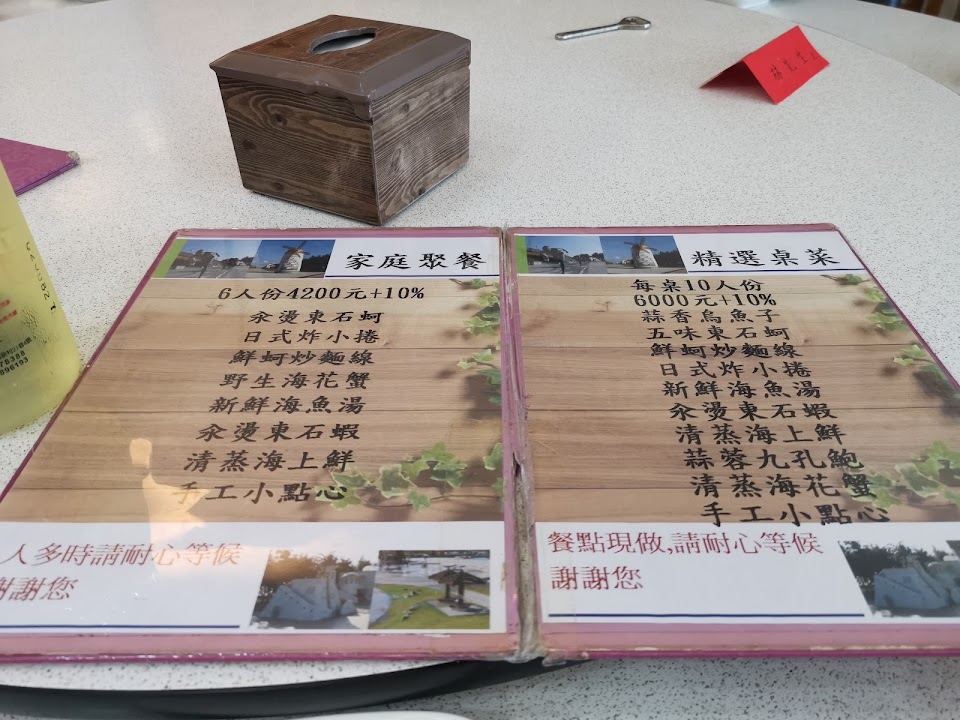 家庭聚餐
6人份4200元+10%
汆燙東石蚵
日式炸小捲
鮮蚵炒麵線
野生海花蟹
新鮮海魚湯
汆燙東石蝦
清蒸海上鮮
手工小點心
人多時請耐心等候
謝謝您
精選桌菜
每桌10人份
6000元+10%
蒜香烏魚子
五味東石蚵
鮮蚵炒麵線
日式炸小捲
新鮮海魚湯
汆燙東石蝦
清蒸海上鮮
蒜蓉九孔鮑
清蒸海花蟹
手工小點心
餐點現做,請耐心等候
謝謝您